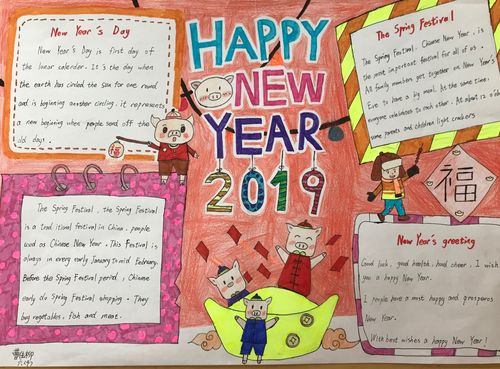 New Year's Day
New Year's Day is first day of
the lunar calender. It's the day when
the earth has circled the sun for one round
and is beginning another circling. it represents
a new beginning when people send off the
old days.
HAPPY
NEW
YEAR
2019
福
The Spring Festival
The Spring Festival, Chinese New Year, is
the most important festival for all of us.
All family members get together on New Year's
Eve to have a big meal. At the same time,
everyone celebrates to each other. At about 12 o'clo
some parents and children light crackers
福
The Spring Festival, the Spring Festival
is a traditional festival in China, people
used as Chinese New Year. This Festival is
always in every early January to mid February.
Before the Spring Festival period, Chinese
early do Spring Festival shopping. They
buy vegetables, fish and meat.
New Year's greeting
Good luck, good health, hood cheer. I wish
you a happy New Year.
I people have a most happy and prosperous
New Year.
With best wishes a happy New Year!